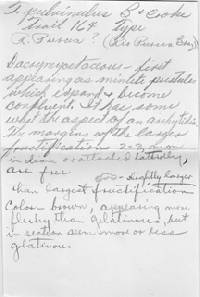 T. pulvinulus B & Cooke
Trail 167 Type
R. Pierson? (Leo Pierson Esq)
Dacrymycetaceous - first
appearing as minute pustules
which expand & become
confluent. It has some
what the aspect of an
The margins of the larger
fructification 2-3 mm
in diam or attached laterally,
are free
slightly larger
than largest fructification
Color brown, appearing more
fleshy than gelatinous, but
in section seen more or less
gelatinous.